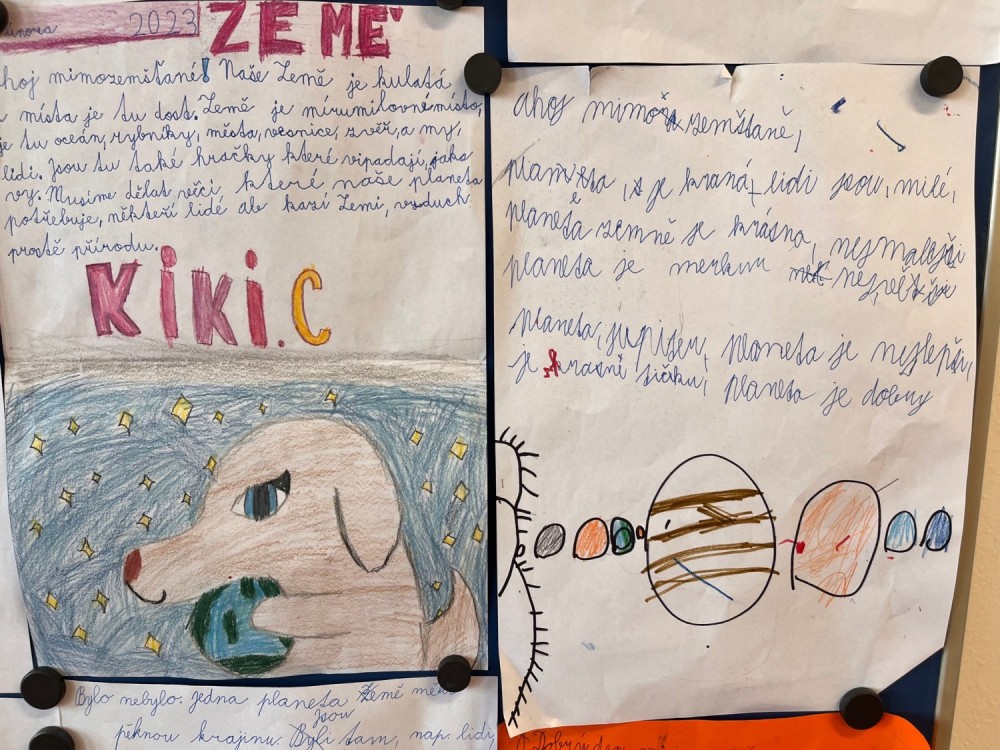 února 2023
ZEMĚ
hoj mimozemšťané! Naše Země je kulatá
místa je tu dost. Země je mírumilovné místo,
je tu oceán, rybníky, města, vesnice, zvěř, a my,
lidi. Jsou tu také hračky které vipadají, jako
vy. Musíme dělat věci, které naše planeta
potřebuje, někteří lidé ale kazí Zemi, vzduch
prostě přírodu.
KIKI.C
Bylo nebylo. jedna planeta Země
jsou
pěknou krajinu. Byli tam, např. lidi,
ahoj mimozemštaně,
planeta, je krásná, lidi jsou, milé,
planeta země je krásna, nejmalejši
planeta je merkur nejvetšije
planeta, jupiter, planeta je nejlepši,
je planeta je dobry
Dobrý den